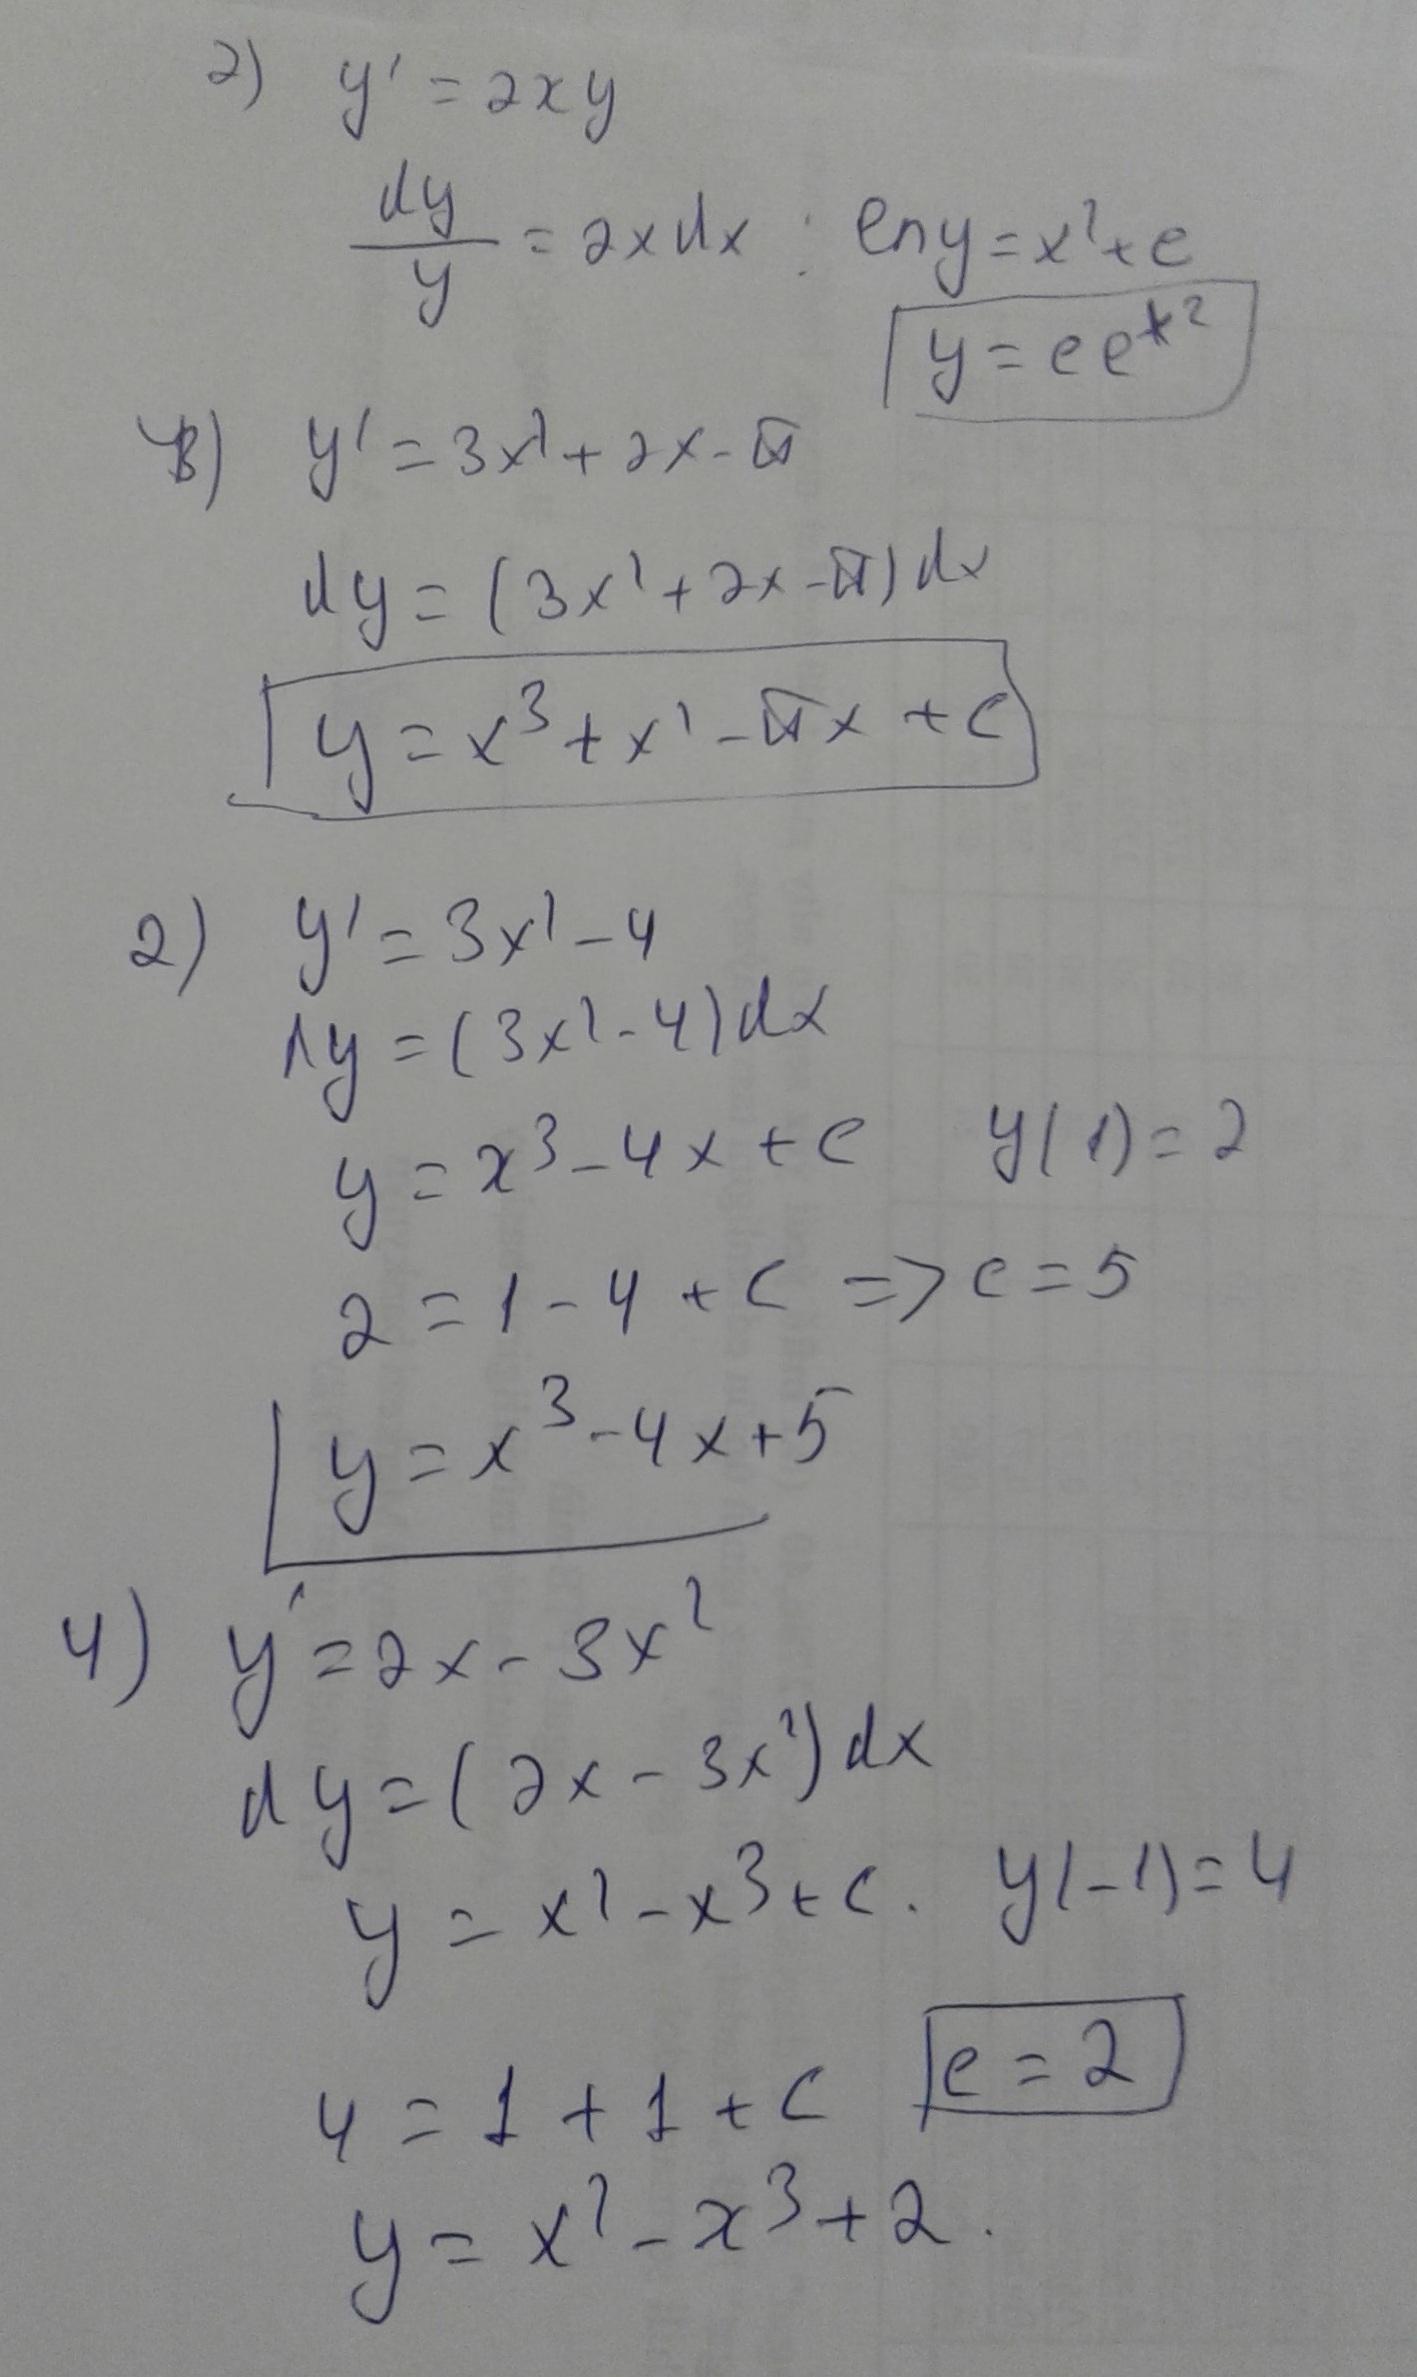 2) y' = 2xy
dy/y = 2xdx : lny = x² + c
y = ce^x²
y' = 3x² + 2x - π
dy = (3x² + 2x - π) dx
y = x³ + x² - πx + c
2) y' = 3x² - 4
dy = (3x² - 4) dx
y = x³ - 4x + c y(1) = 2
2 = 1 - 4 + c => c = 5
y = x³ - 4x + 5
4) y' = 2x - 3x²
dy = (2x - 3x²) dx
y = x² - x³ + c. y(-1) = 4
4 = 1 + 1 + c c = 2
y = x² - x³ + 2.